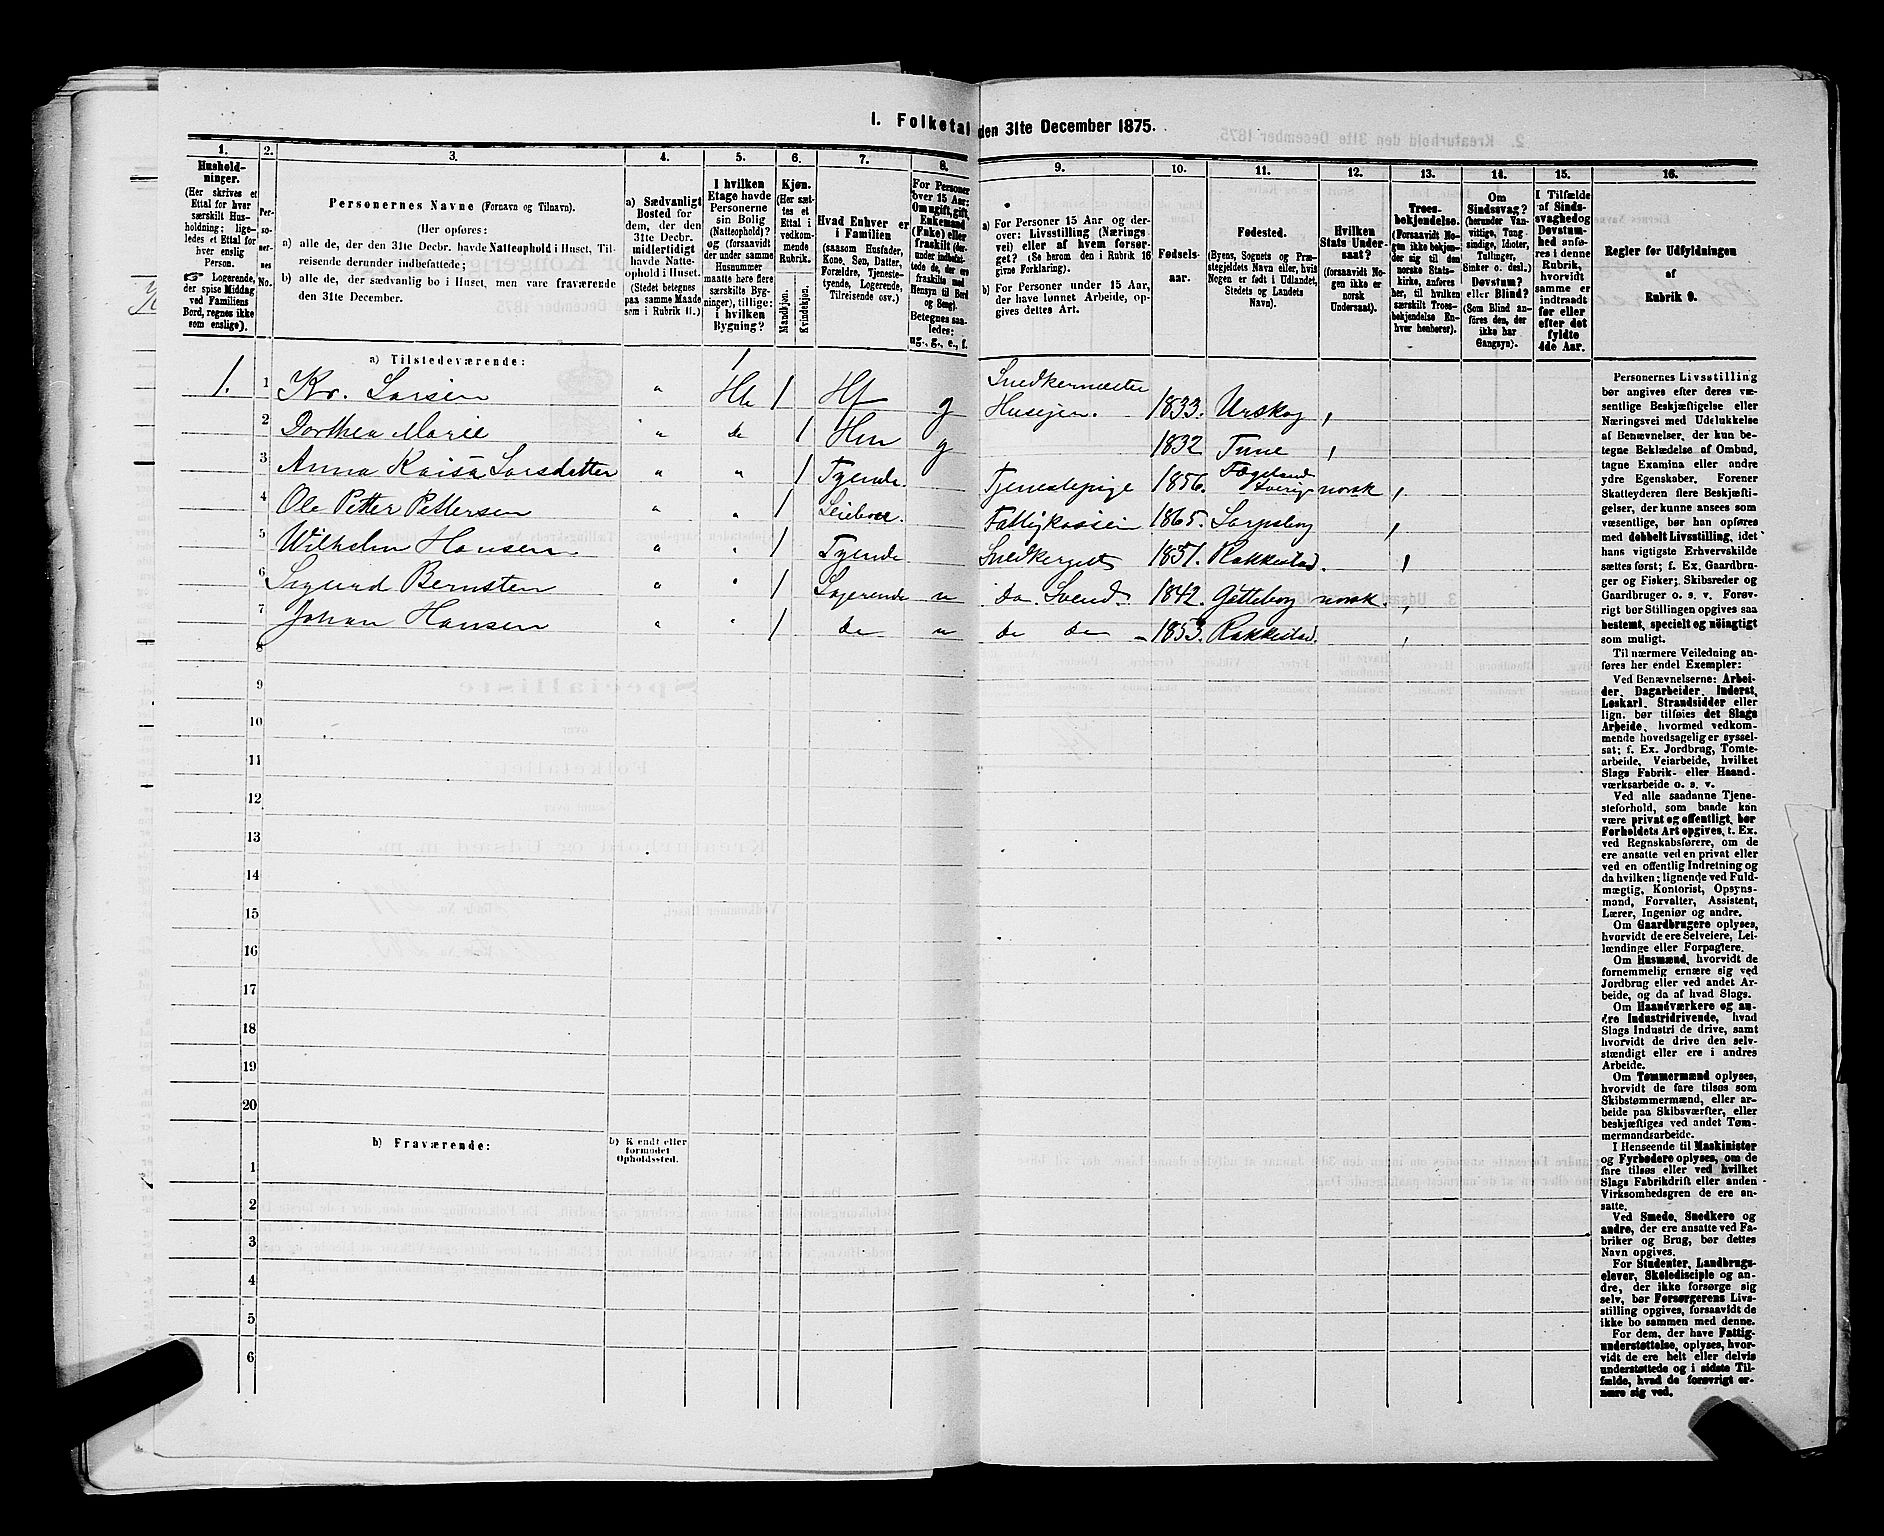 1. Folketal den 31te December 1875.
1.
2.
3.
4.
5.
6.
7.
8.
9.
10.
11.
12.
13.
14.
15.
16.
Husholdninger.
(Her skrives et Ettal for hver særskilt Husholdning; ligeledes et Ettal for hver enslig Person.
☞ Logerende, der spise Middag ved Familiens Bord, regnes ikke som enslige).
Personernes No.
Personernes Navne (Fornavn og Tilnavn).
(Her opføres:
a) alle de, der den 31te Decbr. havde Natteophold i Huset, Tilreisende derunder indbefattede;
b) alle de, der sædvanlig bo i Huset, men vare fraværende den 31te December.
a) Sædvanligt Bosted for dem, der den 31te Decbr. midlertidigt havde Natteophold i Huset. (Stedet betegnes paa samme Maade som i Rubrik 11.)
I hvilken Etage havde Personerne sin Bolig (Natteophold)? og (forsaavidt der under samme Husnummer maatte høre flere særskilte Bygninger), tillige: i hvilken Bygning?
Kjøn. (Her sættes et Ettal i vedkommende Rubrik.
Mandkjøn.
Kvindekjøn.
Hvad Enhver er i Familien
(saasom Husfader, Kone, Søn, Datter, Forældre, Tjenestetyende, Logerende, Tilreisende osv.)
For Personer over 15 Aar: Om ugift, gift, Enkemand (Enke) eller fraskilt (derunder indbefattede de, der ere fraskilte med Hensyn til Bord og Seng). Betegnes saaledes: ug., g., e., f.
a) For Personer 15 Aar og derover: Livsstilling (Næringsvei) eller af hvem forsørget? (Se herom den i Rubrik 16 givne Forklaring).
b) For Personer under 15 Aar, der have lønnet Arbeide, opgives dettes Art.
Fødselsaar.
Fødested.
(Byens, Sognets og Præstegjeldets Navn eller, hvis Nogen er født i Udlandet, Stedets og Landets Navn).
Hvilken Stats Undersaat?
(forsaavidt Nogen ikke er norsk Undersaat).
Troesbekjendelse. (Forsaavidt Nogen ikke bekjender sig til den norske Statskirke, anføres her, til hvilken særskilt Troesbekjendelse Enhver henhører).
Om Sindssvag? (herunder Vanvittige, Tungsindige, Idioter, Tullinger, Sinker o. desl.) Døvstum? eller Blind? (Som Blind anføres den, der ikke har Gangsyn).
I Tilfælde af Sindssvaghed og Døvstumhed anføres i denne Rubrik, hvorvidt samme er indtraadt før eller efter det fyldte 4de Aar.
Regler for Udfyldningen af Rubrik 9.
a) Tilstedeværende:
1. 1 Kr. Larsen " 1 1 Hf g Snedkermester Huseier. 1833. Urskog
2 Dorthea Marie " do 1 Hm g 1832 Tune
3 Anna Kaisa Larsdatter " " 1 Tyende. Tjenestepige 1856. Sverig norsk
4 Ole Petter Pettersen " " 1 Fattigkassen 1865. Sarpsborg
5 Wilhelm Hansen " " 1 Tyende 1851. Rakkestad.
6 Sigurd Bernsten " " 1 Logerende u do. Svend. 1842. Gøtteborg norsk.
7 Johan Hansen " " 1 do u do do 1853. Rakkestad.
8
9
10
11
12
13
14
15
16
17
18
19
20
b) Fraværende:
b) Kjendt eller formodet Opholdssted.
1
2
3
4
5
6
Personernes Livsstilling bør angives efter deres væsentlige Beskjæftigelse eller Næringsvei med Udelukkelse af Benævnelser, der kun betegne Beklædelse af Ombud, tagne Examina eller andre ydre Egenskaber. Forener Skatteyderen flere Beskjæftigelser, der kunne ansees som væsentlige, bør han opføres med dobbelt Livsstilling, idet hans vigtigste Erhvervskilde sættes først; f. Ex. Gaardbruger og Fisker; Skibsreder og Gaardbruger o. s. v. Forøvrigt bør Stillingen opgives saa bestemt, specielt og nøiagtigt som muligt.
Til nærmere Veiledning anføres her endel Exempler:
Ved Benævnelserne: Arbeider, Dagarbeider, Inderst, Løskarl, Strandsidder eller lign. bør tilføies det Slags Arbeide, hvormed vedkommende hovedsagelig er sysselsat; f. Ex. Jordbrug, Tomtearbeide, Veiarbeide, hvilket Slags Fabrik- eller Haandværksarbeide o. s. v.
Ved alle saadanne Tjenesteforhold, som baade kan være privat og offentligt, bør Forholdets Art opgives, t. Ex. ved Regnskabsførere, om de ere ansatte ved en privat eller ved en offentlig Indretning og da hvilken; lignende ved Fuldmægtig, Kontorist, Opsynsmand, Forvalter, Assistent, Lærer, Ingeniør og andre.
Om Gaardbrugere oplyses, hvorvidt de ere Selveiere, Leilændinge eller Forpagtere.
Om Husmænd, hvorvidt de fornemmelig ernære sig ved Jordbrug eller ved andet Arbeide, og da af hvad Slags.
Om Haandværkere og andre Industridrivende, hvad Slags Industri de drive, samt hvorvidt de drive den selvstændigt eller ere i andres Arbeide.
Om Tømmermænd oplyses, hvorvidt de fare tilsøs som Skibstømmermænd, eller arbeide paa Skibsværfter, eller beskjæftiges ved andet Tømmermandsarbeide.
I Henseende til Maskinister og Fyrbødere oplyses, om de fare tilsøs eller ved hvilket Slags Fabrikdrift eller anden Virksomhedsgren de ere ansatte.
Ved Smede, Snedkere og andre, der ere ansatte ved Fabriker og Brug, bør dettes Navn opgives.
For Studenter, Landbrugselever, Skoledisciple og andre, der ikke forsørge sig selv, bør Forsørgerens Livsstilling opgives, forsaavidt de ikke bo sammen med denne.
For dem, der have Fattigunderstøttelse, oplyses, hvorvidt de ere helt eller delvis understøttede og i sidste Tilfælde, hvad de forøvrigt ernære sig ved.